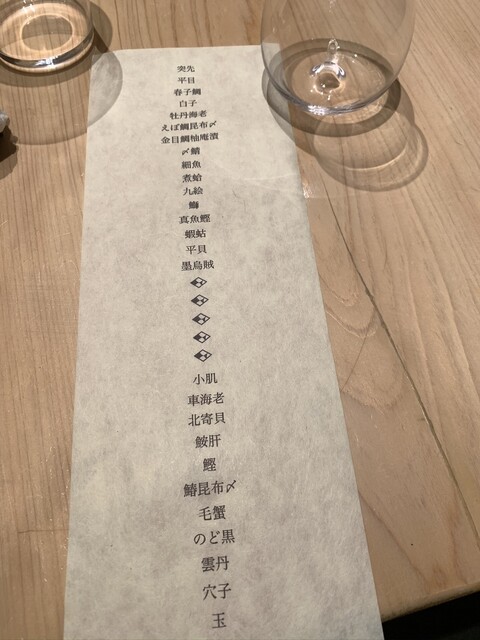 突先
平目
春子鯛
白子
牡丹海老
えぼ鯛昆布〆
金目鯛柚庵漬
〆鯖
細魚
煮蛤
九絵
鰤
真魚鰹
蝦蛄
平貝
墨烏賊
小肌
車海老
北寄貝
鮟肝
鰹
鰆昆布〆
毛蟹
のど黒
雲丹
穴子
玉